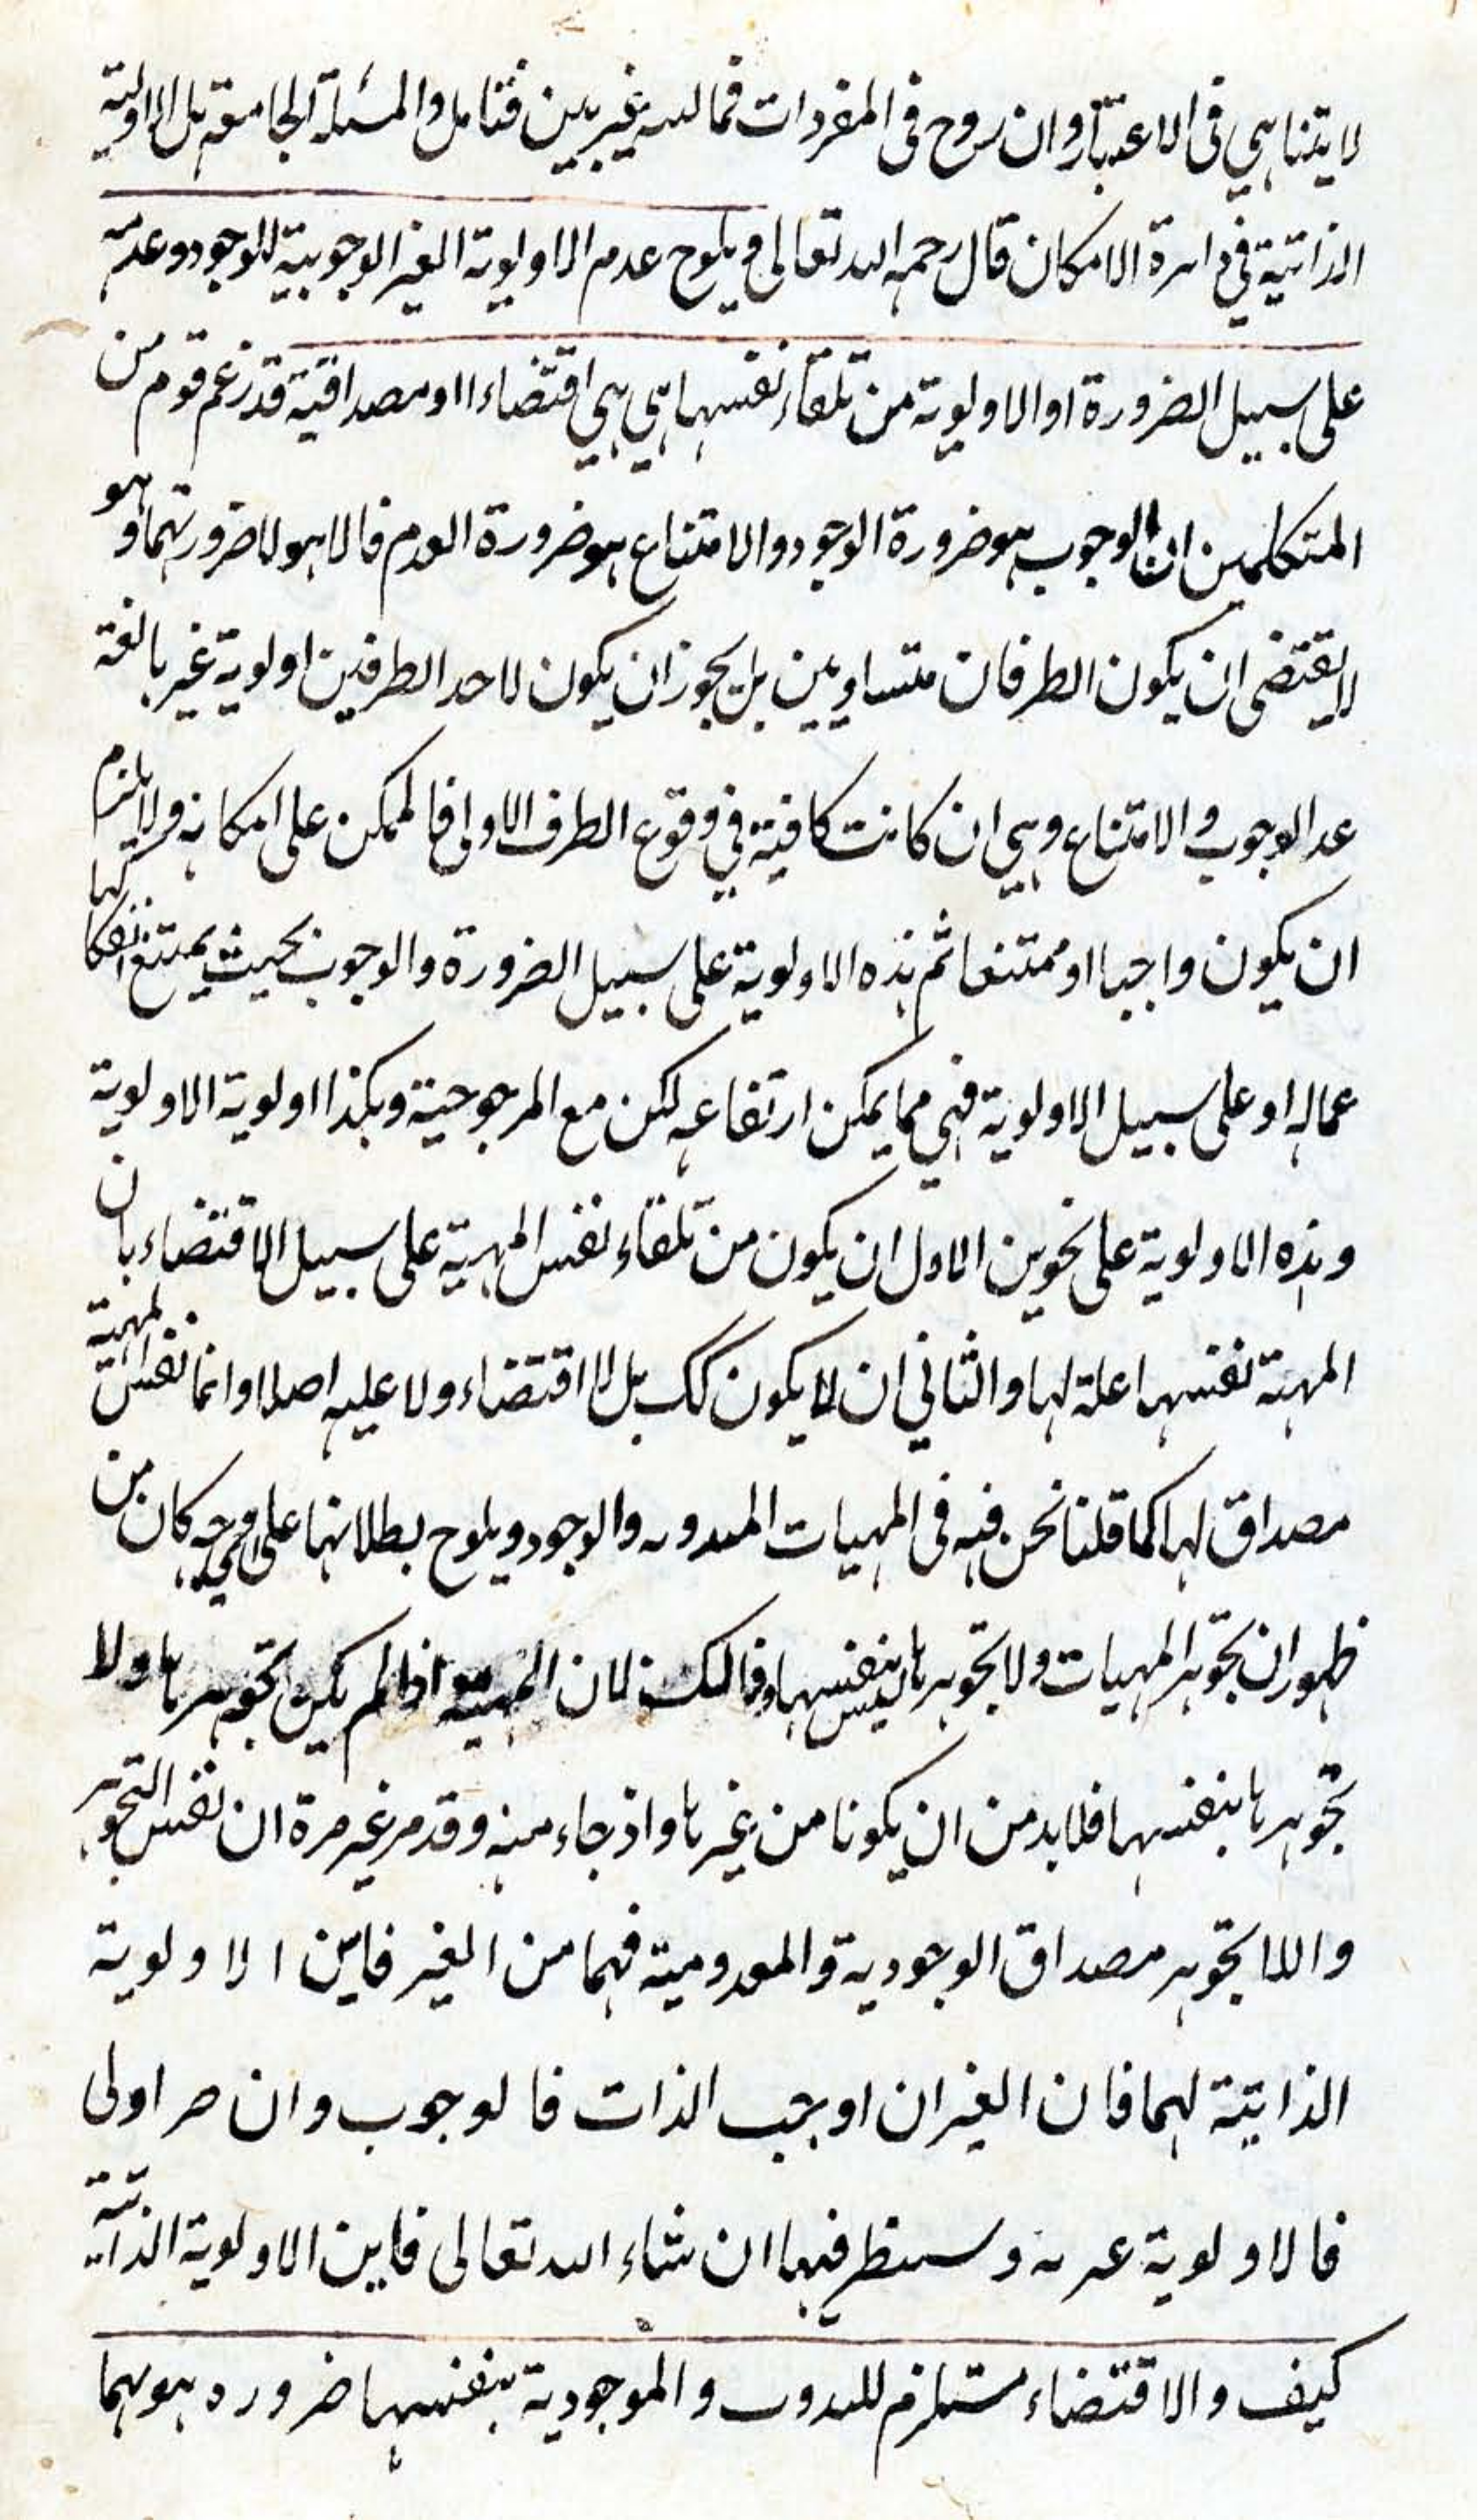 لا يتناهي في الاعتبار وان روح في المفردات فمالسه غير بين فتامل والمسئلة الجامعة بل الاولية
الذاتية في دائرة الامكان قال رحمه الله تعالى ويلوح عدم الاولوية الغير الوجوبية للوجود وعدمه
على سبيل الضرورة او الاولوية من تلقاء نفسها هي هي اقتضاء او مصداقية قد زعم قوم من
المتكلمين ان الوجوب هو ضرورة الوجود والامتناع هو ضرورة العدم فالا هو لا ضرورتهما وهو
لا يقتضى ان يكون الطرفان متساويين بل يجوز ان يكون لاحد الطرفين اولوية غير بالغة
عد الوجوب والامتناع وهي ان كانت كافية في وقوع الطرف الاولى فالممكن على امكانه ولا يلزم
ان يكون واجبا او ممتنعا ثم هذه الاولوية على سبيل الضرورة والوجوب بحيث يمتنع انفكاكها
عماله او على سبيل الاولوية فهي مما يمكن ارتفاعه لكن مع المرجوحية وهكذا اولوية الاولوية
وهذه الاولوية على نحوين الاول ان يكون من تلقاء نفس المهية على سبيل الاقتضاء بان
المهية نفسها علة لها والثاني ان لا يكون كك بل لا اقتضاء ولا علية اصلا وانما نفس المهية
مصداق لها كما قلنا نحن فيه في المهيات والوجود ويلوح بطلانها على اي وجه كان من
ظهور ان تجوهر المهيات ولا تجوهرها ليس بنفسها وذالك لان المهية اذا لم يكن تجوهرها ولا
تجوهرها بنفسها فلا بد من ان يكونا من غيرها واذ جاء منه وقد مر غير مرة ان نفس التجوهر
واللا تجوهر مصداق الوجودية والمعدومية فهما من الغير فاين الاولوية
الذاتية لهما فان الغير ان اوجب الذات فالوجوب وان صر اولى
فالاولوية وسينظر فيها ان شاء الله تعالى فاين الاولوية الذاتية
كيف والاقتضاء مستلزم والموجودية بنفسها ضرورة هو بهما